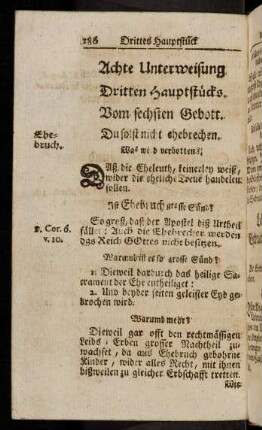 186 Drittes Hauptstück
Achte Unterweisung
Dritten Hauptstücks.
Vom sechsten Gebott.
Du solst nicht ehebrechen.
Ehe-
bruch.
Was wird verbotten?
Daß die Eheleuth, keinerley weiß,
wider die eheliche Treue handelen
sollen.
Ist Ehebruch grosse Sünd?
1. Cor. 6.
v. 10.
So groß, daß der Apostel diß Urtheil
fället: Auch die Ehebrecher werden
das Reich GOttes nicht besitzen.
Warumb ist es so grosse Sünd?
1. Dieweil dardurch das heilige Sa-
crament der Ehe entheiliget:
2. Und beyder seiten geleister Eyd ge-
brochen wird.
Warumb mehr?
Dieweil gar offt den rechtmässigen
Leibs-Erben grosser Nachtheil zu-
wachset, da aus Ehebruch gebohrne
Kinder, wider alles Recht, mit ihnen
bißweilen zu gleicher Erbschafft tretten.